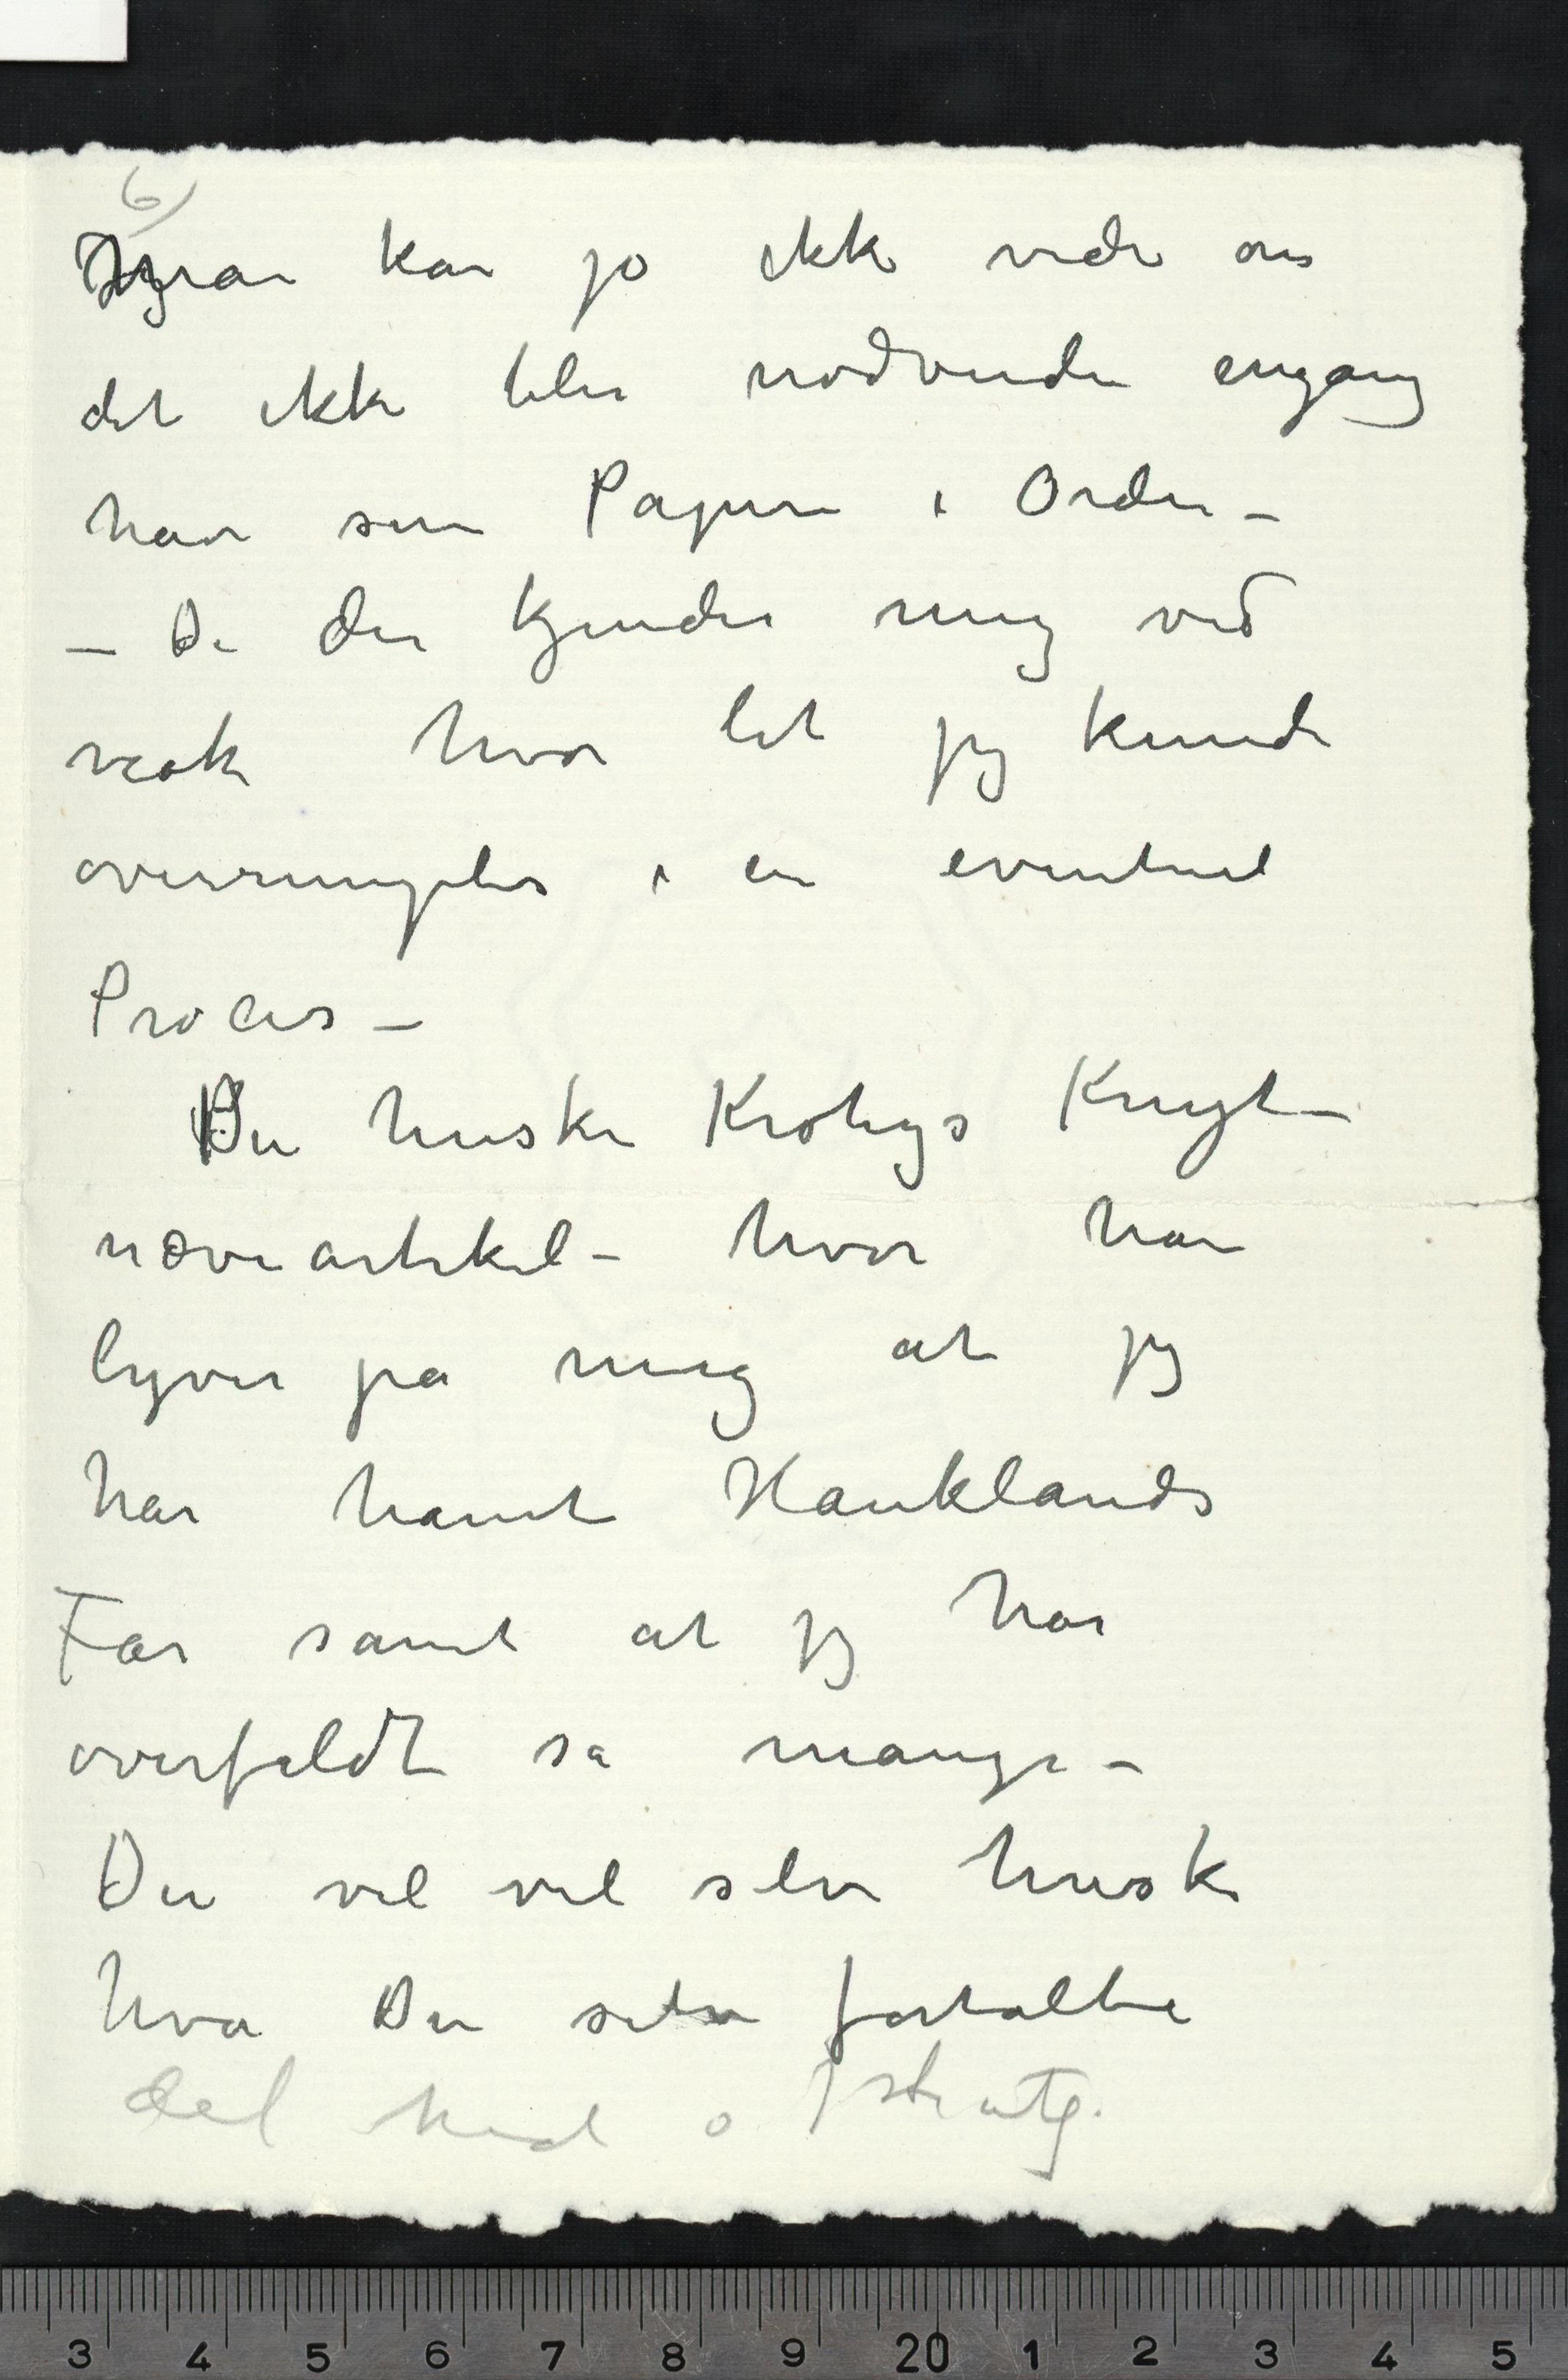 6)
Man kan jo ikke vide om
det ikke blir nødvendi engang
have sine Papire i Orden –
– De der kjender mig ved
nok hvor let jeg kunde
overrumples i en eventuel
Proces –
Du husker Krohgs Knyt-
næveartikel – hvor han
lyver på mig at jeg
har hamt Hauklands
Far samt at jeg har
overfaldt så mange –
Du vil vel selv huske
hva Du selv fortalte
3 4 5 6 7 8 9 20 1 2 3 4 5